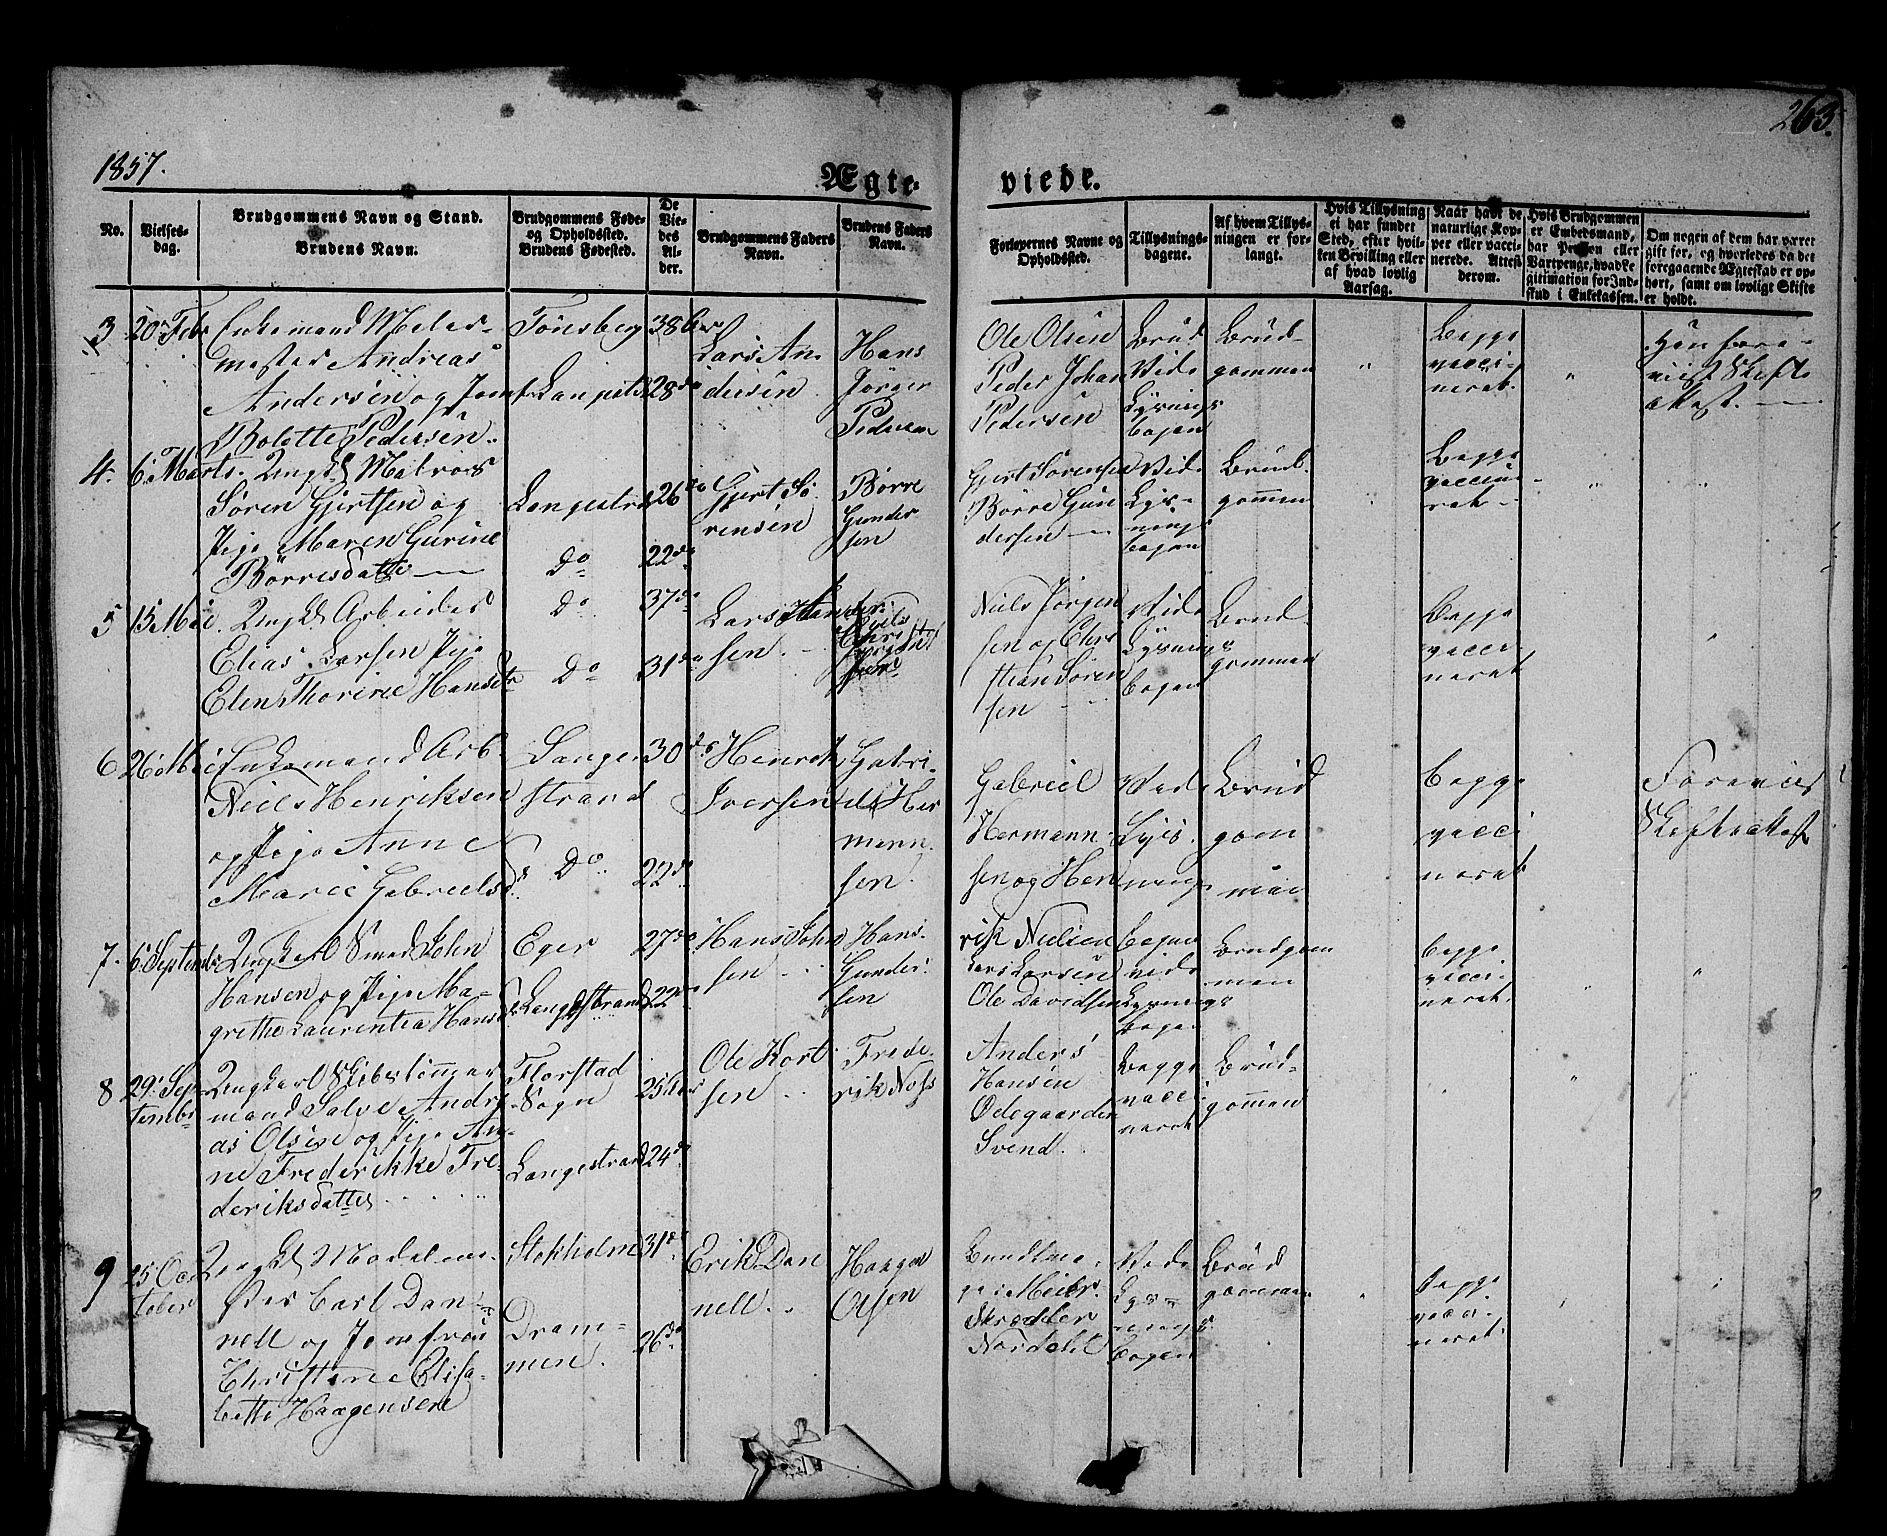 263.
1857.
Ægte-
viede.
No.
Vielses-
dag.
Brudgommens Navn og Stand.
Brudens Navn.
Brudgommens Føde-
og Opholdssted.
Brudens Fødested.
De
Vie-
des
Al-
der.
Brudgommens Faders
Navn.
Brudens Faders
Navn.
Forlovernes Navne og
Opholdssted.
Tillysnings-
dagene.
Af hvem Tillys-
ningen er for-
langt.
Hvis Tillysning
ei har fundet
Sted, efter hvil-
ken Bevilling eller
af hvad lovlig
Aarsag.
Naar havt de
naturlige Kop-
per eller vacci-
nerede. Attest
derom.
Hvis Brudgommen
er Embedsmand,
har Pension eller
Vartpenge, hvad Le-
gitimation for Ind-
skud i Enkekassen.
Om nogen af dem har været
gift før, og hvorledes da det
foregaaende Ægteskab er op-
hørt, samt om lovligt Skifte
er holdt.
3
20 Febr
Enkemand Maler-
mester Andreas
Andersen og Jomfr
Bolette Pedersen.
Tönsberg
Langestr
38 Aar
28 do
Lars An-
dersen
Hans
Jörgen
Pedersen
Ole Olsen
Peder Johan
Pedersen
Brud
Vide
Lysnings
bogen
Brud-
gommen
Begge
vacci-
neret
4.
6 Marts.
Ungkl Matros
Sören Gjertsen og
Pige Maren Gurine
Börresdatter
Langestrand
Do
26 do
22 do
Gjert Sö-
rensen
Börre
Gunder
sen
Gjert Sörensen
Börre Gun
dersen
Vide
Lys-
nings
bogen
Brud-
gommen
Begge
vacci-
neret
5
15 Mai
Ungkl Arbeider
Elias Larsen Pige
Elen Thorine Hansdtr
Do
Do
37 do
31 do
Lars
sen.
Niels Jörgen
sen og Chri
stian Sören
sen
Vide
Lysnings
bogen
Brud
gommen
Begge
vacci-
neret
6
26 Mai
Enkemand Arb.
Niels Henriksen
og Pige Anne
Marie Gabrielsd
Lange
strand
Do
30 do
22 do
Henrik
Iversen
Gabri-
el Her
mann
sen.
Gabriel
Hermann-
sen og Hen
rik Nielsen
Ved
Lys-
nings
bogen
Brud
gom
men
begge
vacci
neret
Foreviist
Skifteattest
7.
6 Septembr
Ungkarl Smed John
Hansen og Pige Ma-
grethe Laurentia Hansd
Eger
Langestrand
27 do
22 do
Hans John
sen
Hans
Gunder-
sen
Lars Larsen
Ole Davidsen
vide
Lysnings
bogen
Brudgom
men
begge
vacci-
neret.
8
29 Sep
tembr
Ungkarl Skibstömmer
mand Salve Andre
as Olsen og Pige An-
ne Frederikke Fre-
deriksdatter
Florstad
Sogn
Langestrand
25 Aar
24 do
Ole Kort
sen
Frede-
rik Noss
Anders
Hansen
Ödegaarden
Svend.
Begge
vacci
neret
Brud-
gommen
9
25 Oc
tober
Ungkl
Carl Dan-
nell og Jomfru
Christine Elisa-
beth Haagensen
Stokholm
Dram-
men.
31 do
26 do
Erik Dan
nell
Haagen
Olsen
Meier.
Skredder
Nordahl
Vide
Lys-
nings
bogen
Brud
gommen
begge
vacci-
neret.